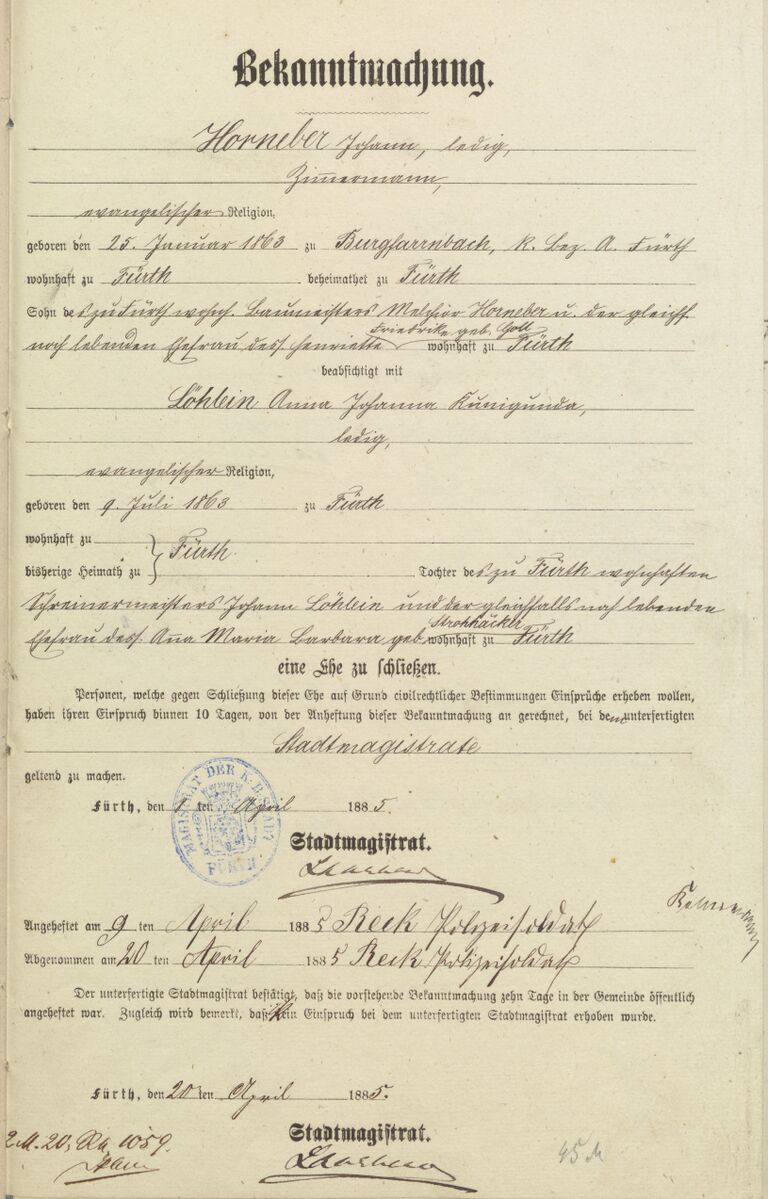 Bekanntmachung.
Horneber Johann, ledig,
Zimmermann,
evangelischer Religion,
geboren den 25. Januar 1863 zu Burgfarrnbach, K. Bez. A. Fürth
wohnhaft zu Fürth beheimathet zu Fürth
Sohn des zu Fürth wohnh. Baumeisters Melchior Horneber u. der gleichf.
Friedrike geb.
noch lebenden Ehefrau dess. Henriette wohnhaft zu Fürth
beabsichtigt mit
Löhlein Anna Johanna Kunigunda,
ledig,
evangelischer Religion,
geboren den 9. Juli 1863 zu Fürth
wohnhaft zu
Fürth.
bisherige Heimath zu Tochter des zu Fürth wohnhaften
Schreinermeisters Johann Löhlein und der gleichfalls noch lebenden
Strohhäcker
Ehefrau dess. Ana Maria Barbara geb. wohnhaft zu Fürth
eine Ehe zu schließen.
Personen, welche gegen Schließung dieser Ehe auf Grund civilrechtlicher Bestimmungen Einsprüche erheben wollen,
haben ihren Einspruch binnen 10 Tagen, von der Anheftung dieser Bekanntmachung an gerechnet, bei dem unterfertigten
Stadtmagistrate
geltend zu machen.
MAGISTRAT DER K. B. STADT
FÜRTH
Fürth, den 1 ten April 1885.
Stadtmagistrat.
Angeheftet am 9 ten April 1885 Reck Polizeisoldat
Abgenommen am 20 ten April 1885 Reck Polizeisoldat
Der unterfertigte Stadtmagistrat bestätigt, daß die vorstehende Bekanntmachung zehn Tage in der Gemeinde öffentlich
angeheftet war. Zugleich wird bemerkt, daß kein Einspruch bei dem unterfertigten Stadtmagistrat erhoben wurde.
Fürth, den 20 ten April 1885.
Stadtmagistrat.
2 M. 20 1059.
45